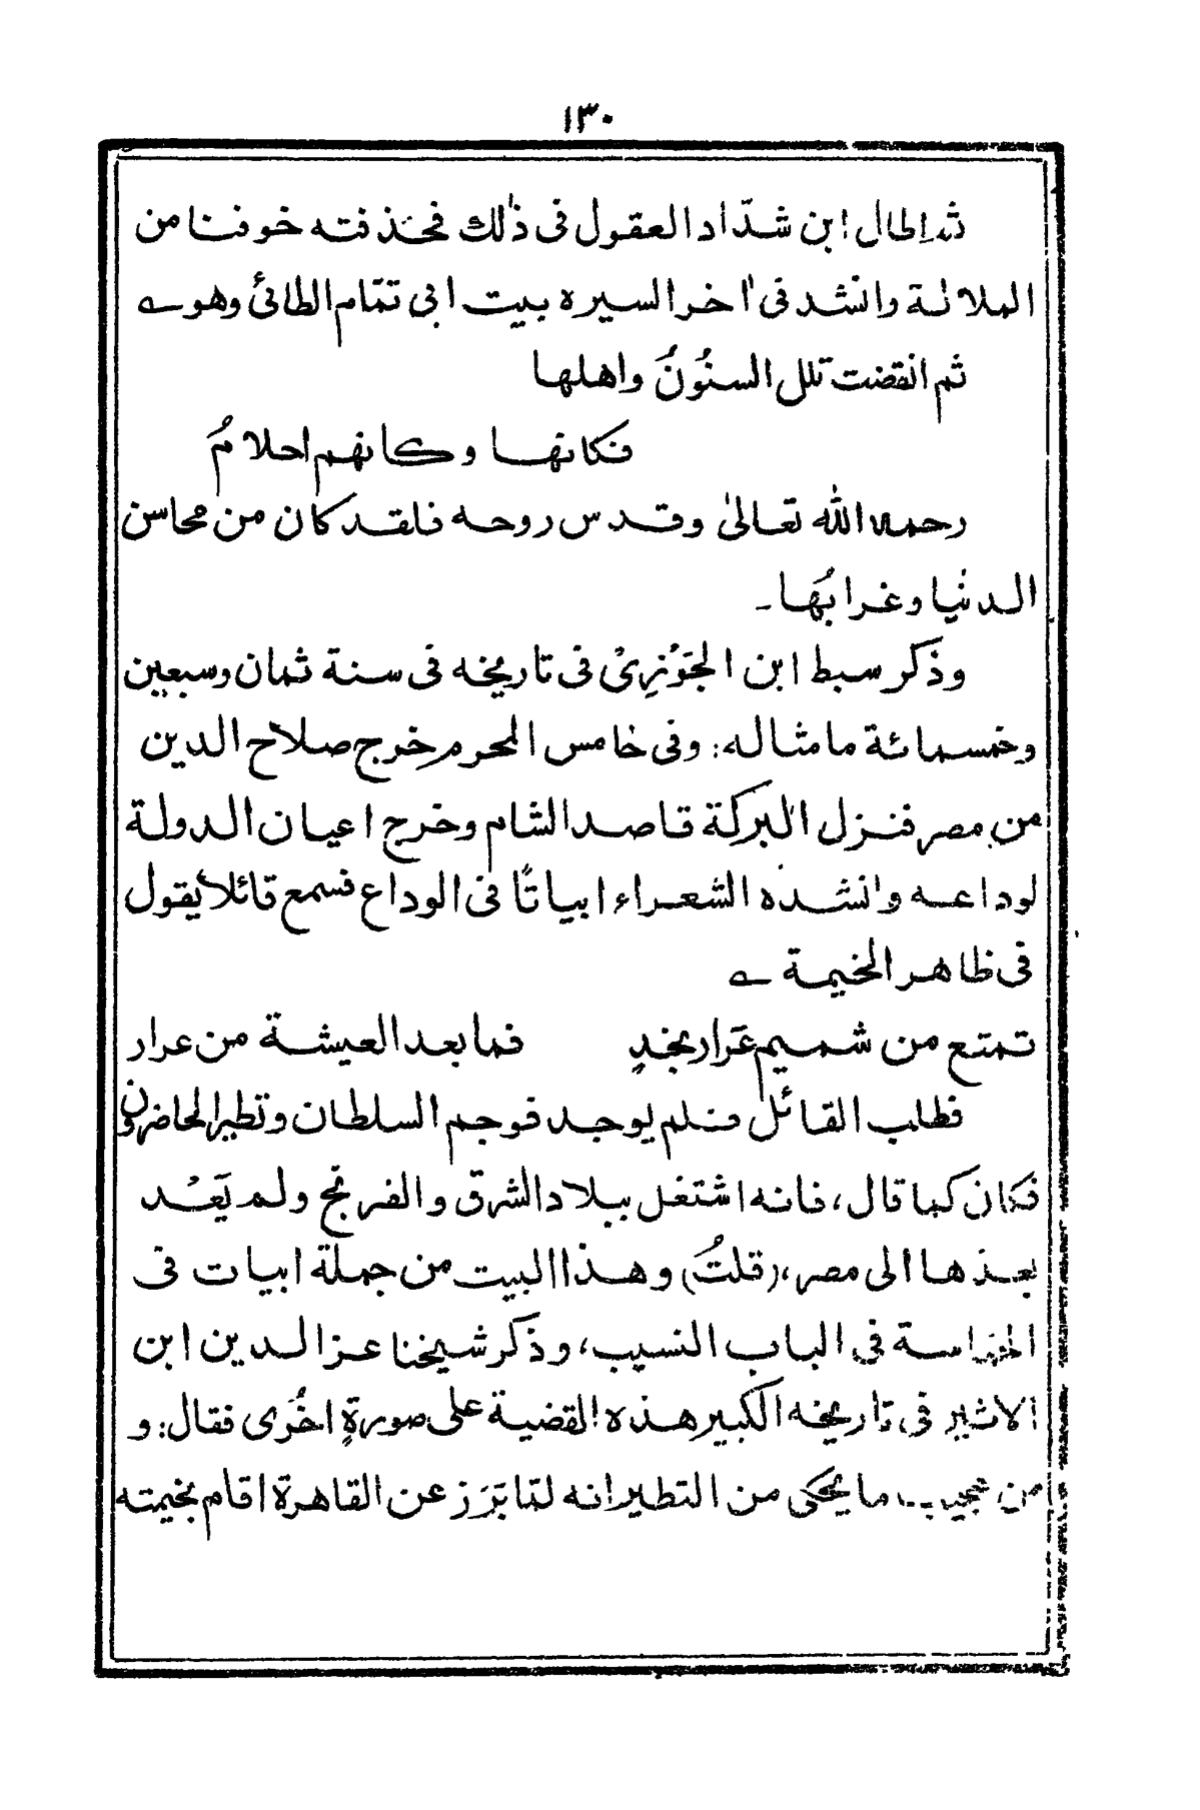 ١٣٠
ثم اطال ابن شدّاد العقول فى ذٰلك فحذفته خوفنا من
الملالة وانشد فى اٰخر السيره ببيت ابى تمّام الطائى وهو ـے
ثم انقضت تلل السنُونُ واهلها
فكانها وكانهم احلامُ
رحمه الله تعالىٰ وقدس روحه فلقد كان من محاسن
الدنيا وغرائبها ۔
وذكر سبط ابن الجَوْزِىْ فى تاريخه فى سنة ثمان وسبعين
وخمسمائة ما مثاله: وفى خامس المحرم خرج صلاح الدين
من مصر فنزل البركة قاصد الشام وخرج اعيان الدولة
لوداعه وانشده الشعراء ابياتًا فى الوداع فسمع قائلا يقول
فى ظاهر الخيمة ـے
تمتع من شميم عَرار بخدٍ فما بعد العيشة من عرار
فطلب القائل فلم يوجد فوجم السلطان وتطير الحاضرون
فكان كما قال، فانه اشتغل ببلاد الشرق والفرنج ولم يَعْد
بعذها الى مصر، (قلتُ) وهذا البيت من جملة ابيات فى
الحماسة فى الباب النسيب، وذكر شيخنا عز الدين ابن
الاثير فى تاريخه الكبير هذه القضية على صورةٍ اخُرى فقال: و
من عجيب ما يحكى من التطير انه لمّا بَرَز عن القاهرة اقام بخيمته